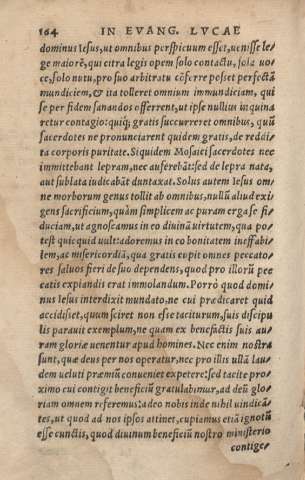 164 IN EVANG. LVCAE
dominus Iesus, ut omnibus perspicuum esset, uenisse le-
ge maiorē, qui citra legis opem solo contactu, sola uo-
ce, solo nutu, pro suo arbitratu cōferre posset perfectā
mundiciem, & ita tolleret omnium immundiciam, qui
se per fidem sanandos offerrent, ut ipse nullius inquina
retur contagio: quiq; gratis succurreret omnibus, quū
sacerdotes ne pronunciarent quidem gratis, de reddi-
ta corporis puritate. Siquidem Mosaici sacerdotes nec
immittebant lepram, nec auferebāt: sed de lepra nata,
aut sublata iudicabāt duntaxat. Solus autem Iesus om
ne morborum genus tollit ab omnibus, nullū aliud exi
gens sacrificium, quàm simplicem ac puram erga se fi-
duciam, ut agnoscamus in eo diuinā uirtutem, qua po-
test quicquid uult: adoremus in eo bonitatem ineffabi
lem, ac misericordiā, qua gratis cupit omnes peccato-
res saluos fieri de suo dependens, quod pro illorū pec
catis expiandis erat immolandum. Porrò quod domi-
nus Iesus interdixit mundato, ne cui prædicaret quid
accidisset, quum sciret non esse taciturum, suis discipu
lis parauit exemplum, ne quam ex benefactis suis au-
ram gloriæ uenentur apud homines. Nec enim nostra
sunt, quæ deus per nos operatur, nec pro illis ulla lau-
dem ueluti præmiū conueniet expetere: sed tacite pro-
ximo cui contigit beneficiū gratulabimur, ad deū glo-
riam omnem referemus: adeo nobis inde nihil uindicā-
tes, ut quod ad nos ipsos attinet, cupiamus etiā ignotū
esse cunctis, quod diuinum beneficiū nostro ministerio
contige-